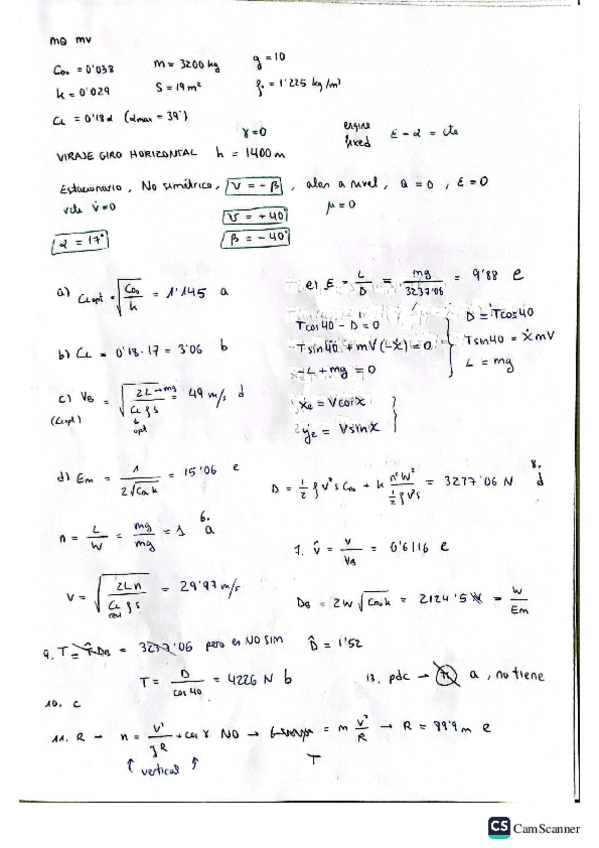 MQ MV
C_D0 = 0'038 m = 3200 kg g = 10
k = 0'029 S = 19 m² ρ₀ = 1'225 kg/m³
CL = 0'18α (αmax = 39°)
γ=0 engine fixed ε - α = cte
VIRAJE GIRO HORIZONTAL h = 1400 m
Estacionario, No simétrico, ν = -β, alas a nivel, a = 0, ε = 0
V̇=0 ν = +40° μ = 0
α = 17° β = -40°
a) CLopt = √(CD0/k) = 1'145 a
e) E = L/D = mg/3237'06 = 9'88 e
Tcos40 - D = 0 D = Tcos40
b) CL = 0'18·17 = 3'06 b
-Tsin40 + mV(-ẋ) = 0 Tsin40 = ẋmV
-L + mg = 0 L = mg
c) VB = √(2L→mg/CL ρ S) = 49 m/s d
(CLopt) opt
ẋe = Vcosχ
ẏe = Vsinχ
d) Em = 1/(2√(CD0 k)) = 15'06 e
D = ½ρV²S CD0 + k n²W²/(½ρV²S) = 3277'06 N 8. d
n = L/W = mg/mg = 1 6. a
7. V̂ = V/VB = 0'6116 e
V = √(2Ln/CL ρ S) = 29'97 m/s
DB = 2W√(CD0 k) = 2124'5 N = W/Em
9. T = = 3237'06 pero es NO SIM D̂ = 1'52
T = D/cos 40 = 4226 N b
13. pdc → a, no tiene
10. c
11. R → n = V²/gR + cos γ NO → = m V²/R → R = 99'9 m e
↑ vertical ↑ T
CS CamScanner